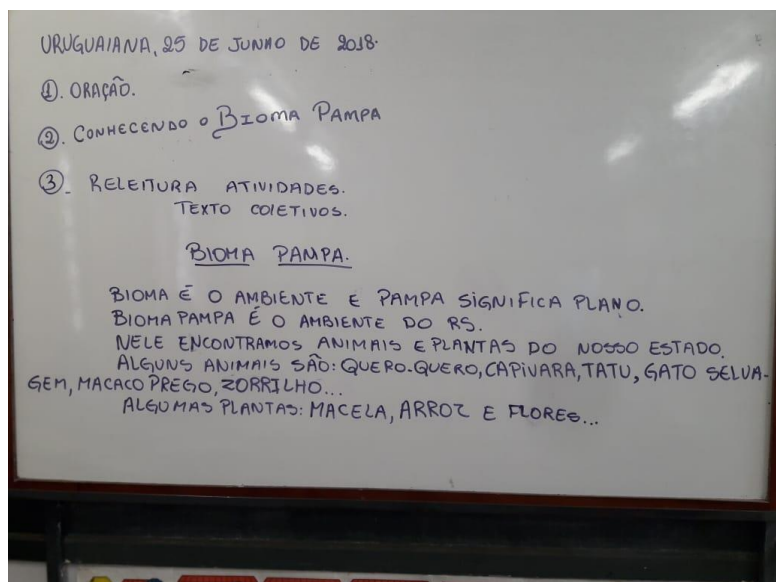 URUGUAIANA, 25 DE JUNHO DE 2018.
①. ORAÇÃO.
②. CONHECENDO O BIOMA PAMPA
③. RELEITURA ATIVIDADES.
TEXTO COLETIVOS.
BIOMA PAMPA.
BIOMA É O AMBIENTE E PAMPA SIGNIFICA PLANO.
BIOMA PAMPA É O AMBIENTE DO RS.
NELE ENCONTRAMOS ANIMAIS E PLANTAS DO NOSSO ESTADO.
ALGUNS ANIMAIS SÃO: QUERO-QUERO, CAPIVARA, TATU, GATO SELVA-
GEM, MACACO PREGO, ZORRILHO...
ALGUMAS PLANTAS: MACELA, ARROZ E FLORES...